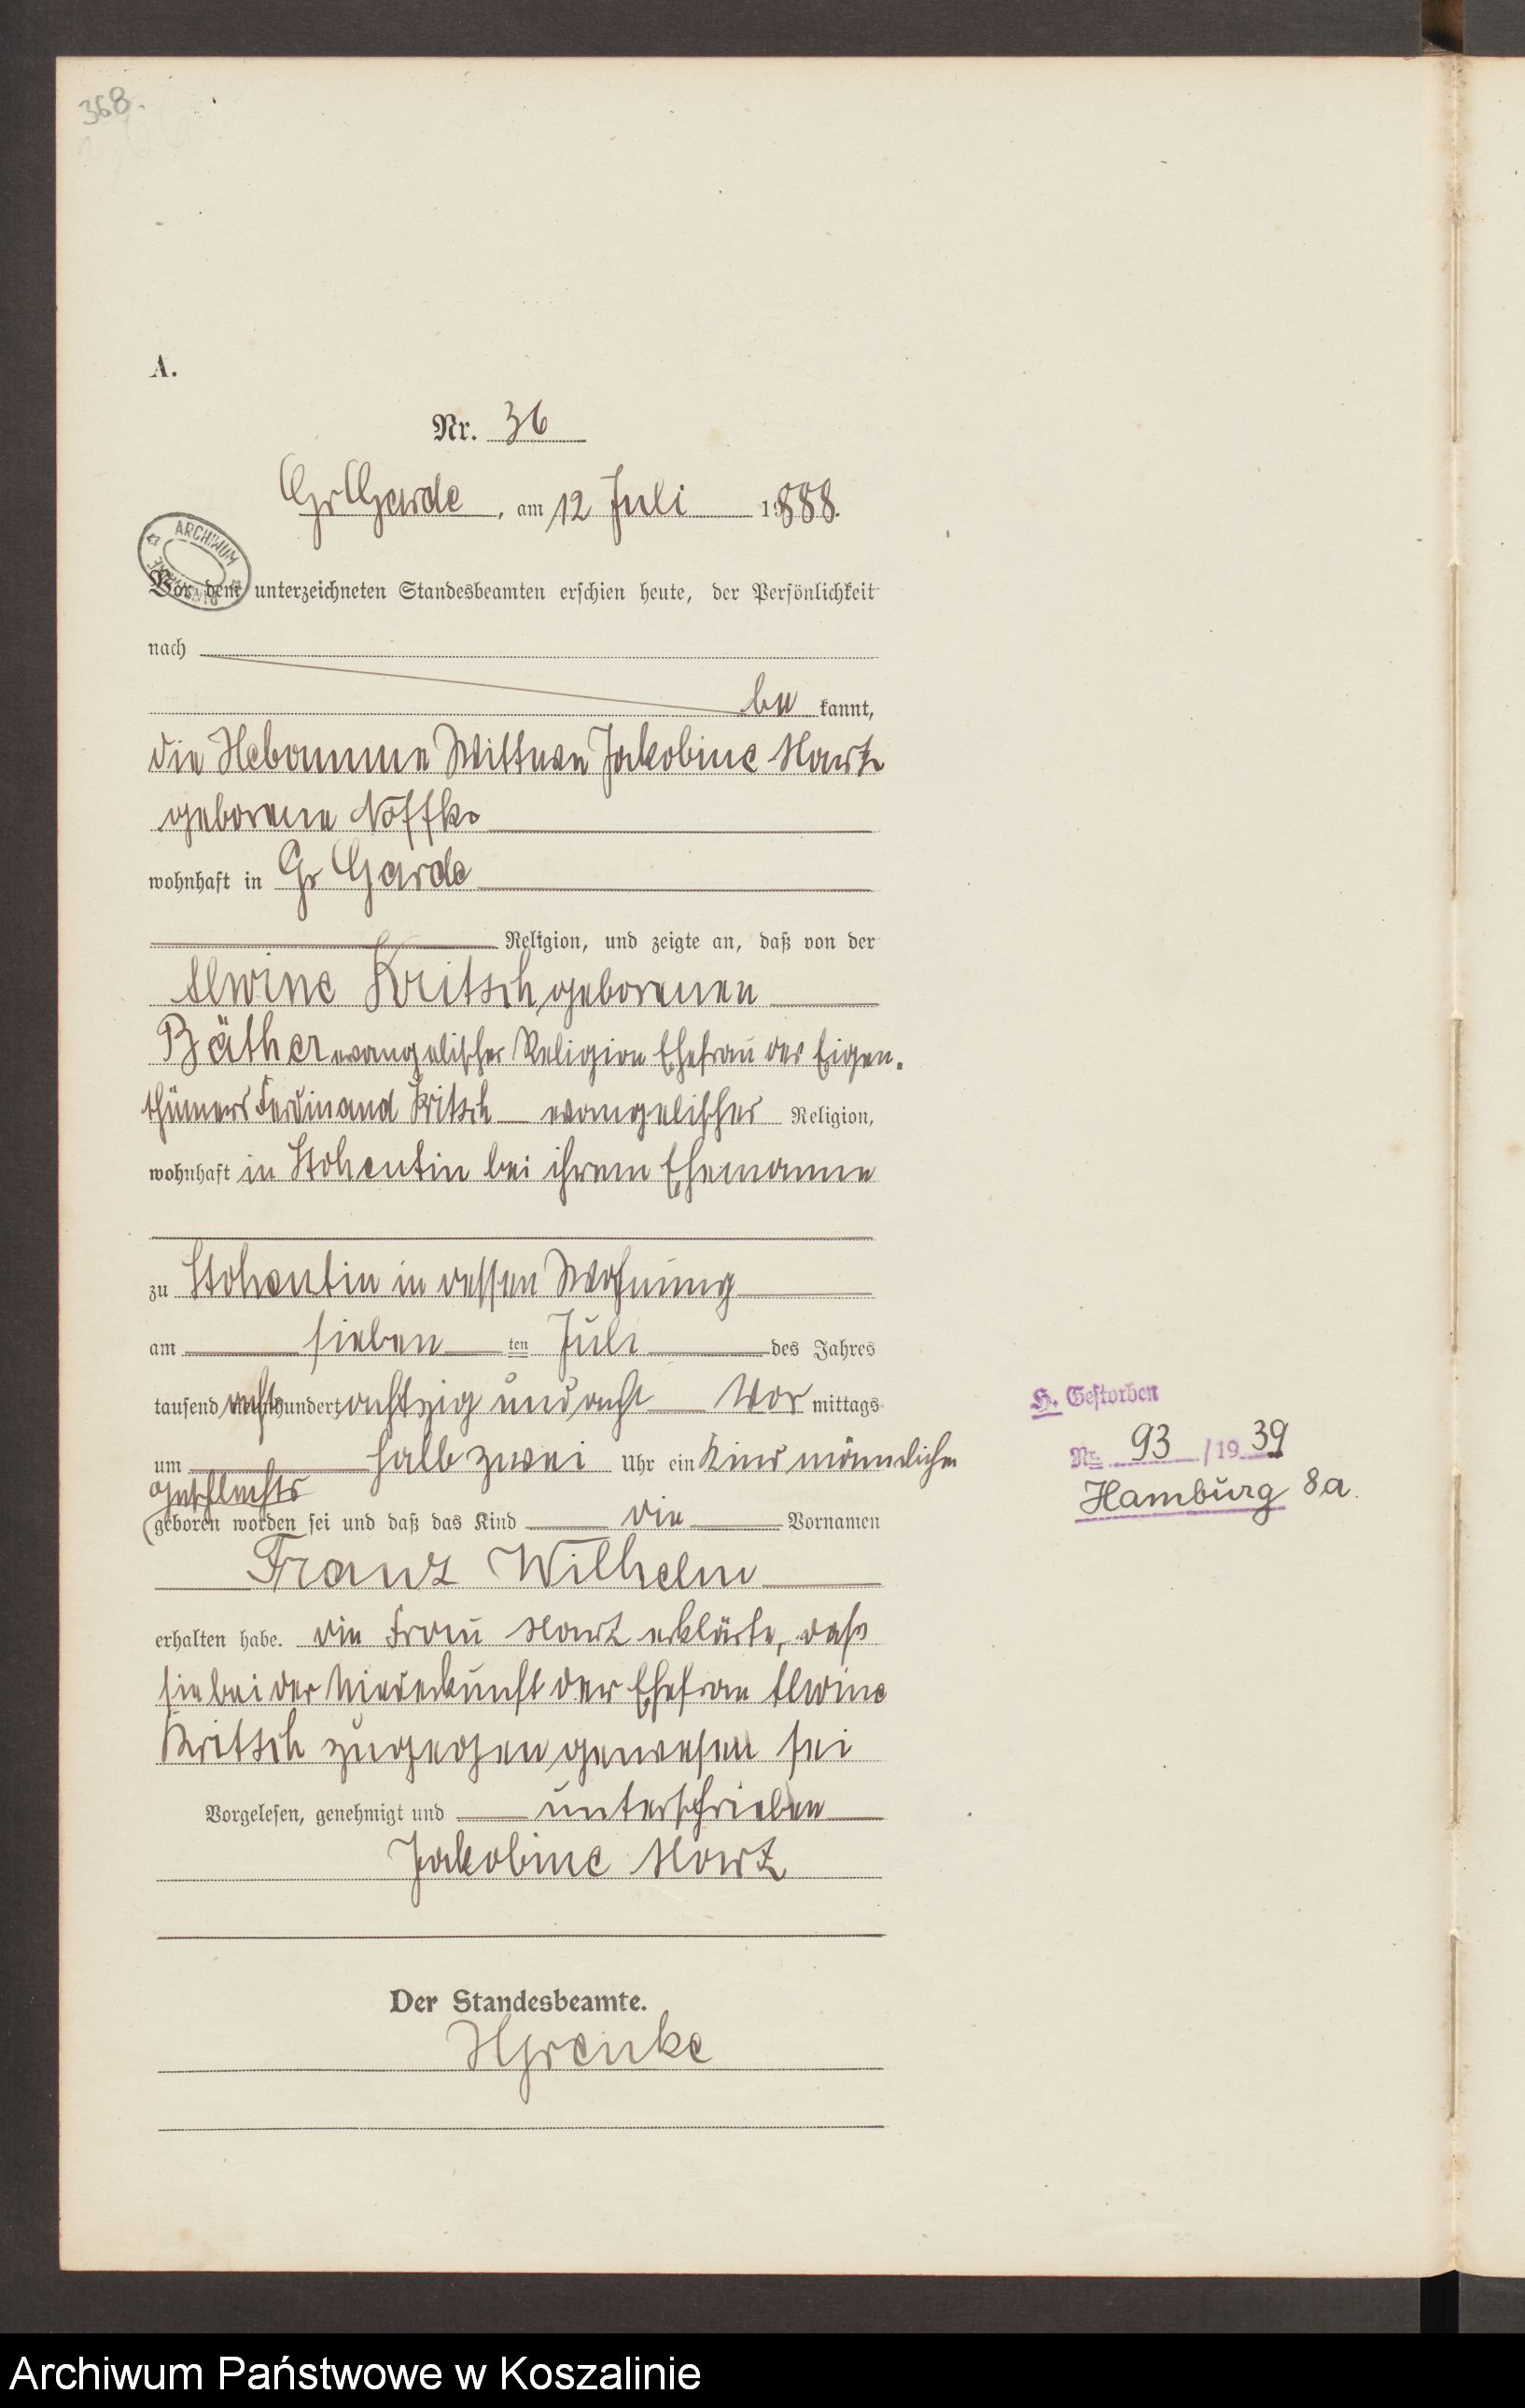 368.
A.
Nr. 36
Gr Garde, am 12 Juli 1888.
ARCHIWUM
Vor dem unterzeichneten Standesbeamten erschien heute, der Persönlichkeit
nach
be kannt,
die Hebamme Wittwe Jakobine Nartz
geborene Noffke
wohnhaft in Gr Garde
Religion, und zeigte an, daß von der
Alwine Kritsch geborenen
Bäther evangelischer Religion Ehefrau des Eigen-
thümers Ferdinand Kritsch evangelischer Religion,
wohnhaft in Stohentin bei ihrem Ehemanne
zu Stohentin in dessen Wohnung
am sieben ten Juli des Jahres
tausend acht hundert achtzig und acht Vor mittags
um halb zwei Uhr ein Kind männlichen
Geschlechts
geboren worden sei und daß das Kind die Vornamen
Franz Wilhelm
erhalten habe. die Frau Nartz erklärte, dass
sie bei der Niederkunft der Ehefrau Alwine
Kritsch zugegen gewesen sei
Vorgelesen, genehmigt und unterschrieben
Jakobine Nartz
Der Standesbeamte.
H. Gestorben
Nr. 93 / 1939
Hamburg 8a.
Archiwum Państwowe w Koszalinie